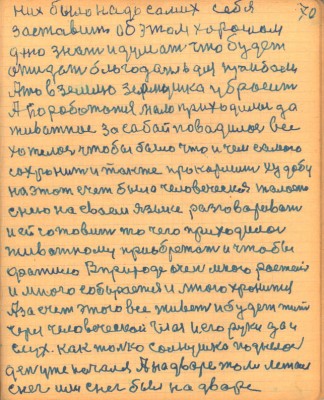 70
них было надо самих себя
заставить об этом хорошом
дню знать и думать что будет
ожидать благодать для прибыли
Это в землю зернушка убросит
А коробота мало приходилос да
животное за сабой повадилос все
хотелос чтобы было что и чем самого
сохронит и также прокармит худобу
на этот счет было человеческа жалост
с ним на своем языке разговариват
и ей готовит то чего приходилос
животному приобретат и чтобы
фатило В природе очен много растет
и много собирается и много хронится
А за счет этого все живет и будет жит
через человеческой глаз и его руки да и
слух. как только солнушка поднелос
ден уже начался А на дворе то ли летом
снег или снег был на дваре